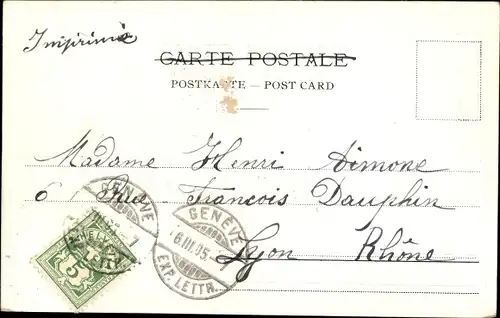 Imprimé
CARTE POSTALE
POSTKARTE – POST CARD
Madame Henri Aimone
6 Rue François Dauphin
Lyon Rhône
GENÈVE
GENÈVE
6.III.05. 7
EXP. LETTR.
5